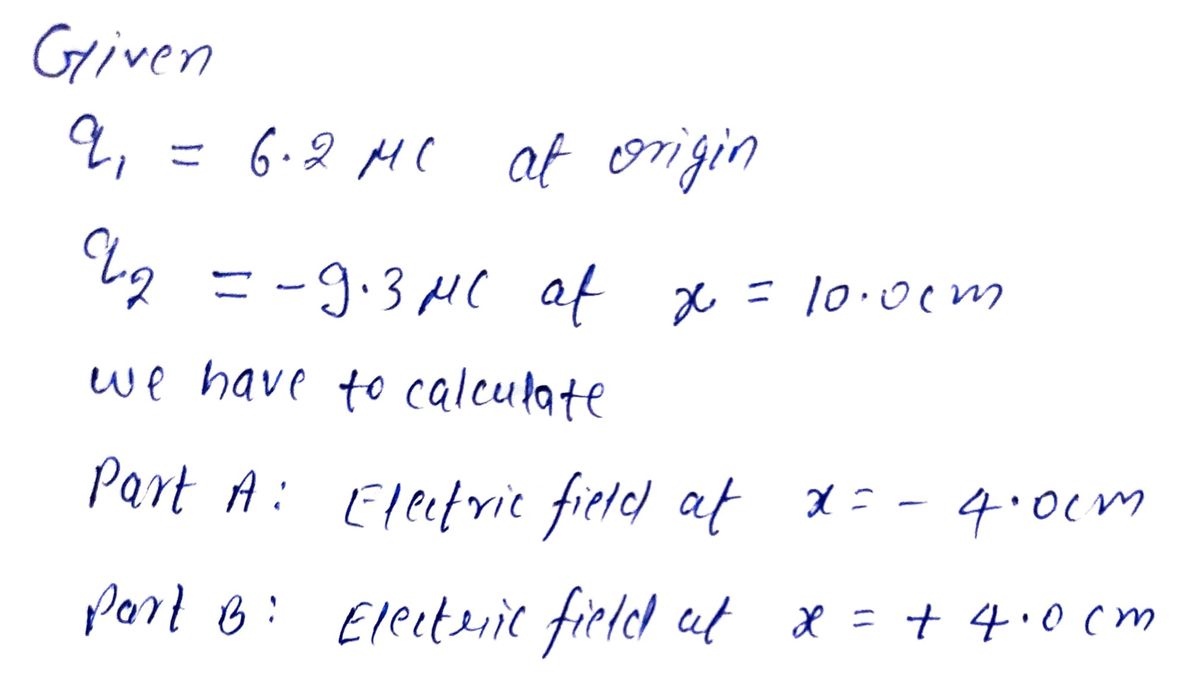 Given
q₁ = 6.2 μC at origin
q₂ = -9.3 μC at x = 10.0cm
we have to calculate
Part A: Electric field at x = - 4.0cm
Part B: Electric field at x = + 4.0 cm